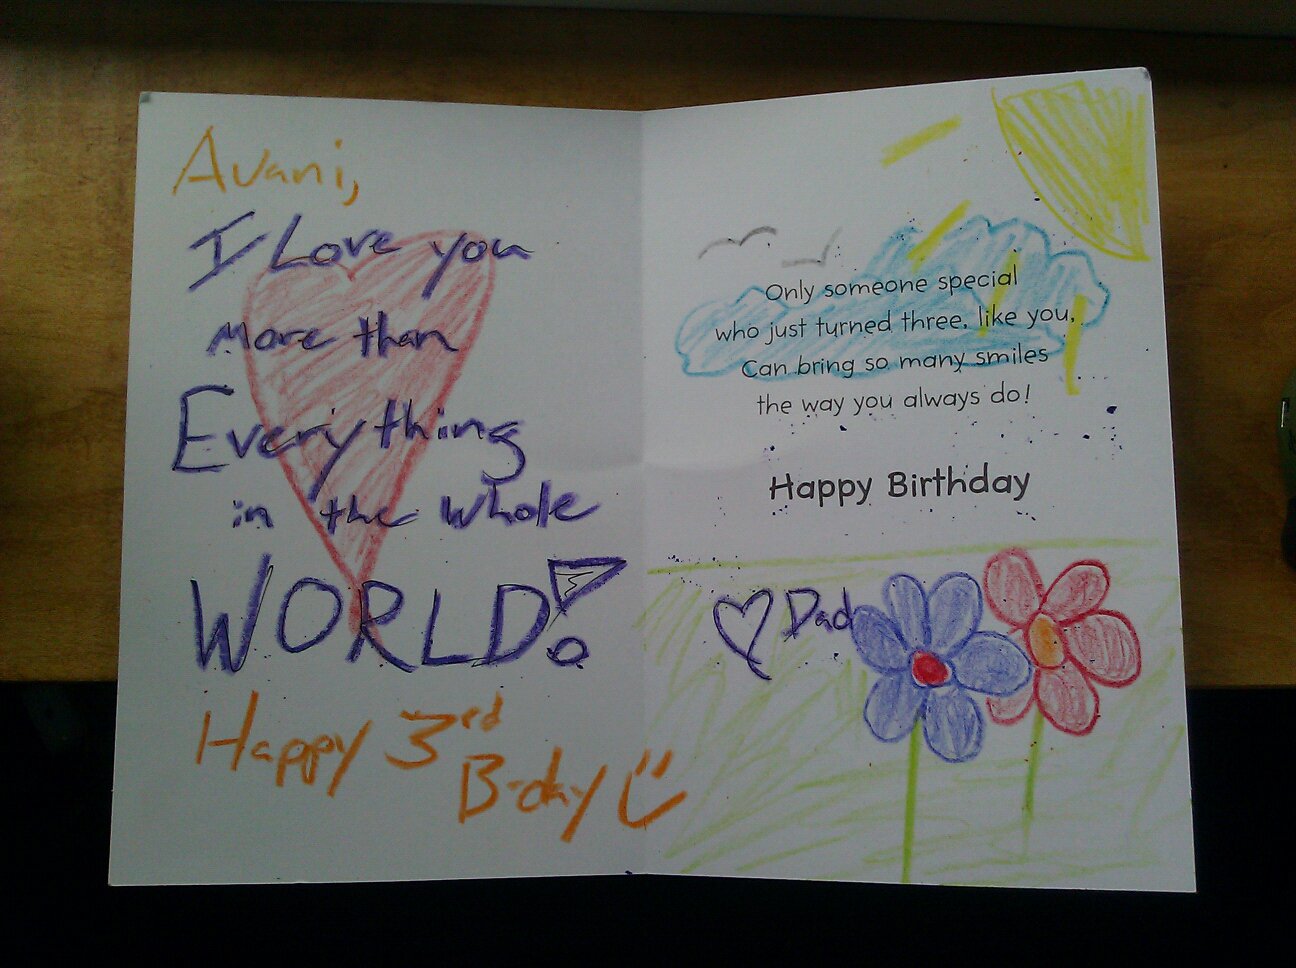 Avani,
I Love you
more than
Everything
in the whole
WORLD!
Happy 3rd
B-day
Only someone special
who just turned three, like you,
Can bring so many smiles
the way you always do!
Happy Birthday
Dad